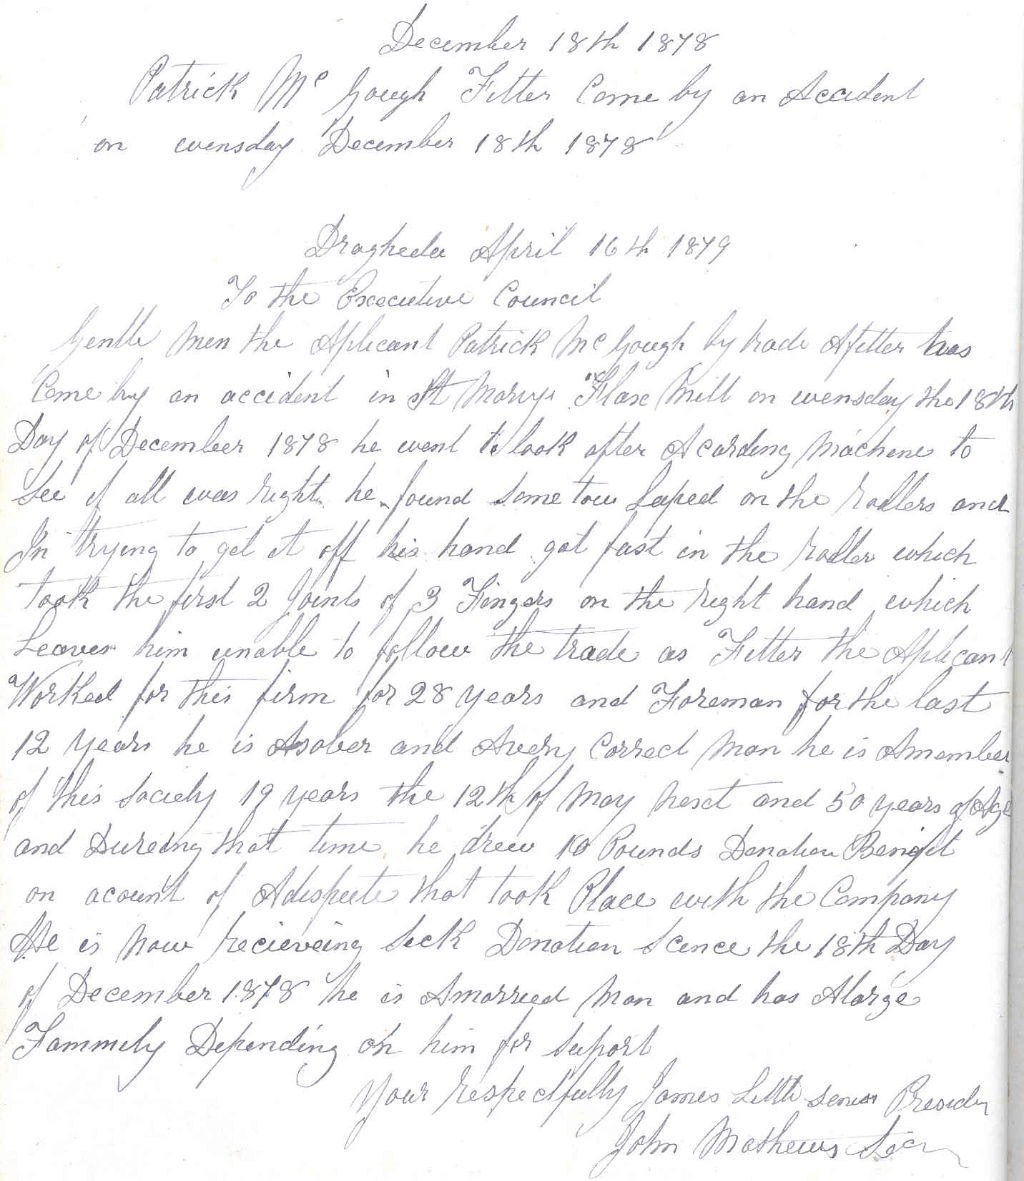 December 18th 1878
Patrick Mc Gough Fitter Come by an Accident
on wensday December 18th 1878
Drogheda April 16th 1879
To the Executive Council
Gentle men the Aplicant Patrick Mc Gough by trade Afitter has
Come by an accident in St Marys Flax Mill on wensday the 18th
Day of December 1878 he went to look after Acarding Machene to
See if all was right he found some tow Laped on the rollers and
In trying to get it off his hand got fast in the roller which
took the first 2 Joints of 3 Fingers on the right hand which
Leaves him unable to follow the trade as Fitter the Aplicant
Worked for this firm for 28 years and Foreman for the last
12 years he is Asober and Avery Correct Man he is Amember
of this Society 19 years the 12th of May next and 50 years of Age
and Dureing that time he drew 10 Pounds Donation Benifit
on acount of Adispute that took Place with the Company
He is now recieveing Sick Donation Scence the 18th Day
of December 1878 he is Amarried Man and has Alarge
Fammely Depending on him for Suport
Your respectfully James Little Senior
John Mathews Secr